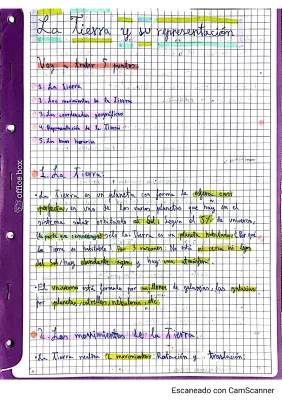 La Tierra y su representación
Voy a tratar 5 puntos
1. La Tierra
2. Los movimientos de la Tierra
3. Las coordenadas geográficas
4. Representación de la Tierra
5. Los husos horarios
1. La Tierra:
• La Tierra es un planeta con forma de esfera casi
perfecta, es uno de los varios planetas que hay en el
sistema solar orbitando al Sol. Según el 5% de universo,
la parte que conocemos, solo la Tierra es un planeta habitable. ¿Por qué
la Tierra es habitable? Por 3 razones: No está ni cerca ni lejos
del Sol, hay abundante agua y hay una atmósfera.
• El universo está formado por millones de galaxias, las galaxias
por planetas, estrellas, nebulosas, etc.
2. Los movimientos de la Tierra
• La Tierra realiza 2 movimientos: Rotación y traslación.
office box
Escaneado con CamScanner